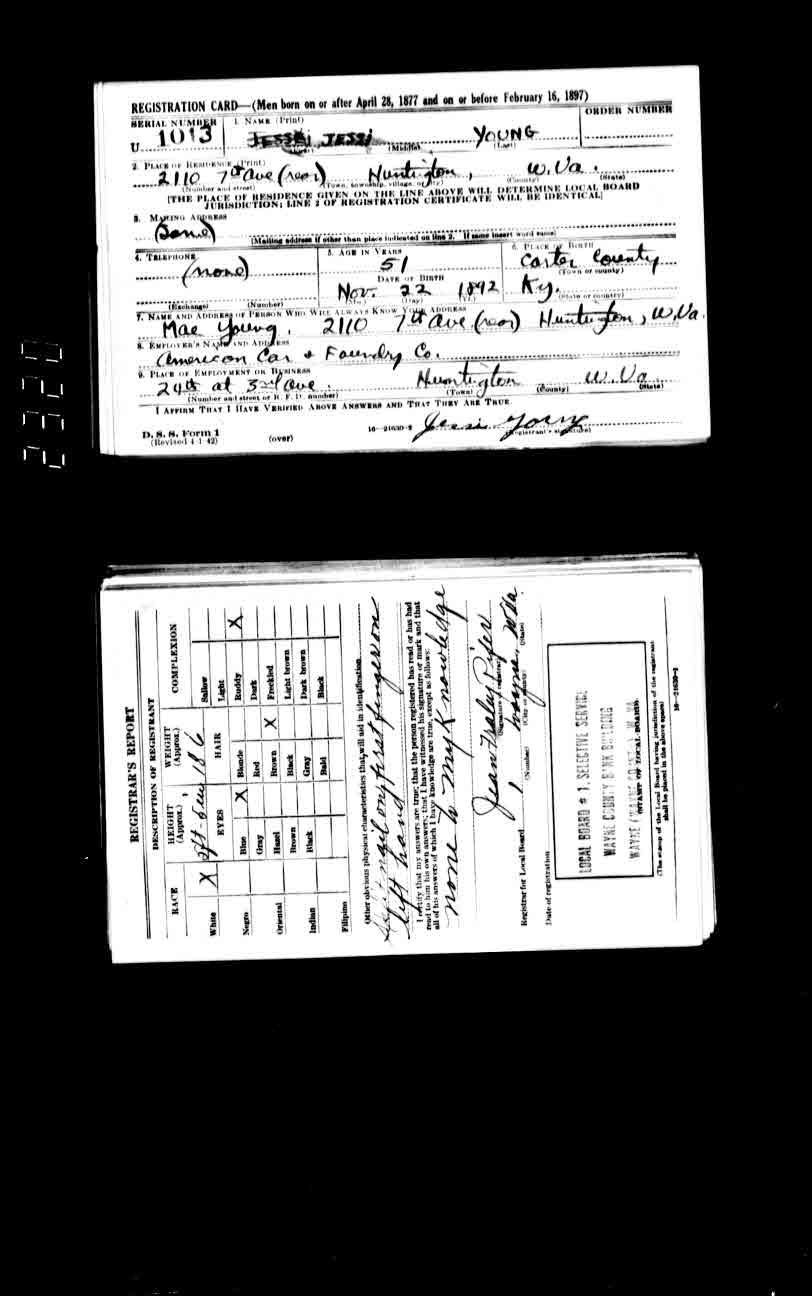 REGISTRATION CARD—(Men born on or after April 28, 1877 and on or before February 16, 1897)
SERIAL NUMBER
1. NAME (Print)
ORDER NUMBER
U 1013
JESSI YOUNG
(First) (Middle) (Last)
2. PLACE OF RESIDENCE (Print)
2110 7th Ave (rear) Huntington, W. Va.
(Number and street) (Town, township, village, or city) (County) (State)
[THE PLACE OF RESIDENCE GIVEN ON THE LINE ABOVE WILL DETERMINE LOCAL BOARD
JURISDICTION; LINE 2 OF REGISTRATION CERTIFICATE WILL BE IDENTICAL]
3. MAILING ADDRESS
(Same)
[Mailing address if other than place indicated on line 2. If same insert word same]
4. TELEPHONE
5. AGE IN YEARS
6. PLACE OF BIRTH
(none)
51
Carter County
(Town or county)
DATE OF BIRTH
Nov. 22 1892
Ky.
(Exchange) (Number)
(Mo.) (Day) (Yr.)
(State or country)
7. NAME AND ADDRESS OF PERSON WHO WILL ALWAYS KNOW YOUR ADDRESS
Mae Young. 2110 7th Ave (rear) Huntington, W. Va.
8. EMPLOYER'S NAME AND ADDRESS
American Car & Foundry Co.
9. PLACE OF EMPLOYMENT OR BUSINESS
24th at 3rd Ave. Huntington W. Va
(Number and street or R. F. D. number) (Town) (County) (State)
I AFFIRM THAT I HAVE VERIFIED ABOVE ANSWERS AND THAT THEY ARE TRUE.
D. S. S. Form 1
(Revised 4-1-42)
(over)
16—21630-2
Jessi Young
(Registrant's signature)
2320
REGISTRAR'S REPORT
DESCRIPTION OF REGISTRANT
RACE
HEIGHT
(Approx.)
WEIGHT
(Approx.)
COMPLEXION
White X
186
Sallow
EYES
HAIR
Light
Negro
Blue X
Blonde
Ruddy X
Gray
Red
Dark
Oriental
Hazel
Brown X
Freckled
Brown
Black
Light brown
Indian
Black
Gray
Dark brown
Bald
Black
Filipino
Other obvious physical characteristics that will aid in identification
nail on first finger on
left hand
I certify that my answers are true; that the person registered has read or has had
read to him his own answers; that I have witnessed his signature or mark and that
all of his answers of which I have knowledge are true, except as follows:
none to my Knowledge
Jean Fraley Pifer
(Signature of registrar)
Registrar for Local Board 1, Wayne, W Va
(Number) (City or county) (State)
Date of registration
LOCAL BOARD # 1, SELECTIVE SERVICE
WAYNE COUNTY BANK BUILDING
STAMP OF LOCAL BOARD
(The stamp of the Local Board having jurisdiction of the registrant
shall be placed in the above space)
16—21630-1